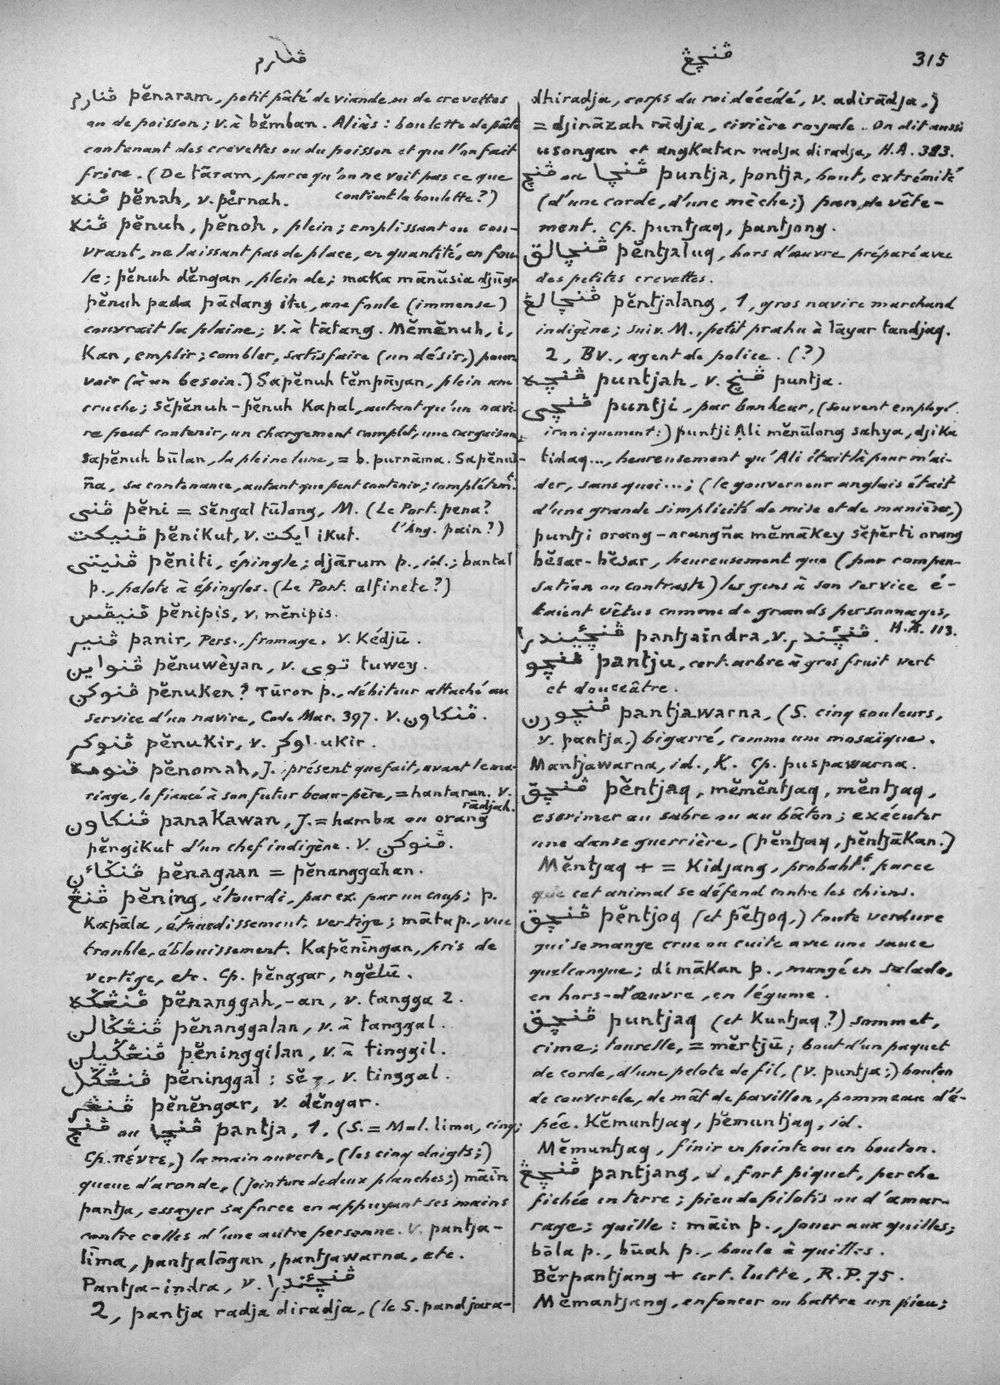 ڤنارم
ڤنچڠ
315
ڤنارم pĕnaram, petit pâté de viande, ou de crevettes
ou de poisson; v. à bĕmban. Aliàs: boulette de pâte
contenant des crevettes ou du poisson et que l'on fait
frire. (De tāram, parce qu'on ne voit pas ce que
contient la boulette?)
ڤنه pĕnah, v. pĕrnah.
ڤنه pĕnuh, pĕnoh, plein; emplissant ou cou-
vrant, ne laissant pas de place, en quantité, en fou-
le; pĕnuh dĕngan, plein de; maka mānūsia djūga
pĕnuh pada pādang itu, une foule (immense)
couvrait la plaine; v. à tātang. Mĕmĕnuh, i,
kan, emplir; combler, satisfaire (un désir,) pour-
voir (à un besoin.) Sapĕnuh tĕmpāyan, plein une
cruche; sĕpĕnuh-pĕnuh kapal, autant qu'un navi-
re peut contenir, un chargement complet, une cargaison;
sapĕnuh būlan, la pleine lune, = b. purnāma. Sapĕnuh-
ña, sa contenance, autant que peut contenir; complétemt.
ڤنى pĕni = sĕngal tūlang, M. (Le Port. pena?
l'Ang. pain?)
ڤنيكت pĕnikut, v. ايكت ikut.
ڤنيتى pĕniti, épingle; djārum p., id.; bantal
p., pelote à épingles. (Le Port. alfinete?)
ڤنيڤس pĕnipis, v. mĕnipis.
ڤنير panir, Pers., fromage. v. Kédjū.
ڤنواين pĕnuwèyan, v. توى tuwey.
ڤنوكن pĕnuken? Tūron p., débiteur attaché au
service d'un navire, Code Mar. 397. v. ڤنكاون.
ڤنوكر pĕnukir, v. اوكر ukir.
ڤنومه pĕnomah, J. présent que fait, avant le ma-
riage, le fiancé à son futur beau-père, = hantaran. v.
rādjah.
ڤنكاون panakawan, J. = hamba ou orang
pĕngikut d'un chef indigène. v. ڤنوكن.
ڤنݢاٴن pĕnagaan = pĕnanggahan.
ڤنڠ pĕning, étourdi, par ex. par un coup; p.
kapāla, étourdissement, vertige; māta p., vue
trouble, éblouissement. Kapĕnīngan, pris de
vertige, etc. Cp. pĕnggar, ngĕlū.
ڤنڠݢه pĕnanggah, -an, v. tangga 2.
ڤنڠݢالن pĕnanggalan, v. à tanggal.
ڤنڠݢيلن pĕninggilan, v. à tinggil.
ڤنڠݢل pĕninggal: sĕ-, v. tinggal.
ڤنڠر pĕnĕngar, v. dĕngar.
ڤنچ ou ڤنچا pantja, 1, (S. = Mal. lima, cinq;
Cp. πέντε,) la main ouverte, (les cinq doigts;)
queue d'aronde, (jointure de deux planches;) māïn
pantja, essayer sa force en appuyant ses mains
contre celles d'une autre personne. v. pantja-
līma, pantjalōgan, pantjawarna, etc.
Pantja-indra, v. ڤنچٴندرا
2, pantja radja diradja, (le S. pandjara-
dhiradja, corps du roi décédé, v. adirādja,)
= djināzah rādja, civière royale. On dit aussi
usongan et angkatan radja diradja, H.A. 383.
ڤنچ ou ڤنچا puntja, pontja, bout, extrémité
(d'une corde, d'une mèche;) pan de vête-
ment. Cp. puntjaq, pantjong.
ڤنچالق pĕntjaluq, hors d'œuvre préparé avec
des petites crevettes.
ڤنچالڠ pĕntjalang, 1, gros navire marchand
indigène; suiv. M., petit prahu à lāyar tandjaq.
2, Bv., agent de police. (?)
ڤنچه puntjah, v. ڤنچ puntja.
ڤنچى puntji, par bonheur, (souvent employé
ironiquement:) puntji Ali mĕnūlong sahya, djika
tidaq..., heureusement qu'Ali était là pour m'ai-
der, sans quoi...; (le gouverneur anglais était
d'une grande simplicité de mise et de manières,)
puntji orang-orangña mĕmākey sĕpĕrti orang
bĕsar-bĕsar, heureusement que (par compen-
sation ou contraste) les gens à son service é-
taient vêtus comme de grands personnages,
H.A. 113.
ڤنچٴيندرا pantjaïndra, v. ڤنچٴندر.
ڤنچو pantju, cert. arbre à gros fruit vert
et douceâtre.
ڤنچورن pantjawarna, (S. cinq couleurs,
v. pantja,) bigarré, comme une mosaïque.
Mantjawarna, id., K. Cp. puspawarna.
ڤنچق pĕntjaq, mĕmĕntjaq, mĕntjaq,
escrimer au sabre ou au bâton; exécuter
une danse guerrière, (pĕntjaq, pĕntjākan.)
Mĕntjaq + = kidjang, probablt. parce
que cet animal se défend contre les chiens.
ڤنچق pĕntjoq (et pĕtjoq,) toute verdure
qui se mange crue ou cuite avec une sauce
quelconque; dimākan p., mangé en salade,
en hors-d'œuvre, en légume.
ڤنچق puntjaq (et kuntjaq?) sommet,
cime; tourelle, = mĕrtjū; bout d'un paquet
de corde, d'une pelote de fil, (v. puntja;) bouton
de couvercle, de mât de pavillon, pommeau d'é-
pée. Kĕmuntjaq, pĕmuntjaq, id.
Mĕmuntjaq, finir en pointe ou en bouton.
ڤنچڠ pantjang, 1, fort piquet, perche
fichée en terre; pieu de pilotis ou d'amar-
rage; quille: māïn p., jouer aux quilles;
bōla p., būah p., boule à quilles.
Bĕrpantjang + cert. lutte, R.P. 75.
Mĕmantjang, enfoncer ou battre un pieu;